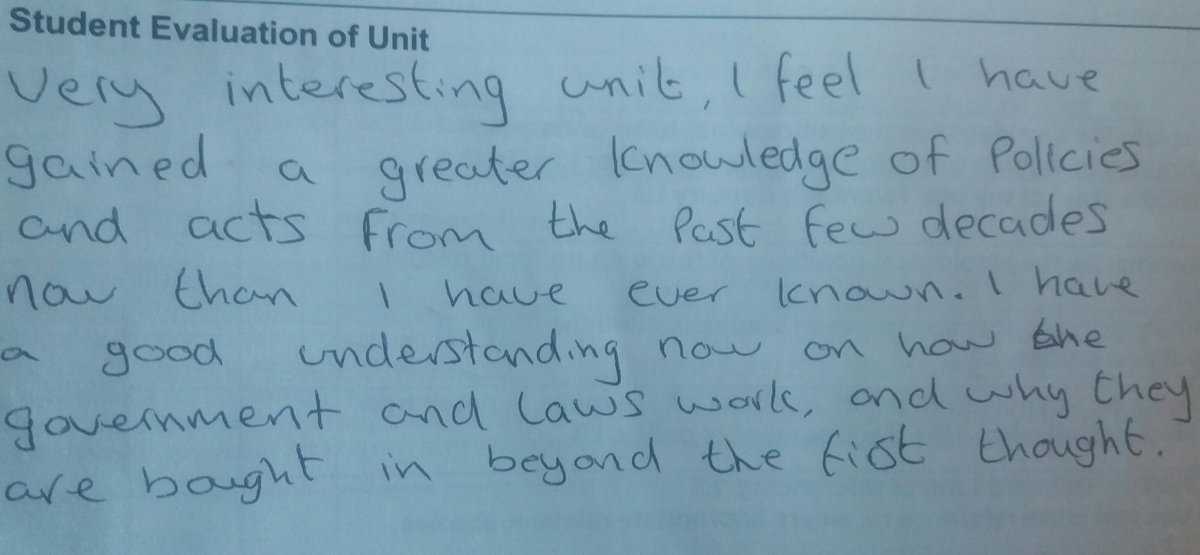 Student Evaluation of Unit
Very interesting unit, I feel I have
gained a greater knowledge of Policies
and acts from the Past few decades
now than I have ever known. I have
a good understanding now on how the
government and laws work, and why they
are bought in beyond the fist thought.